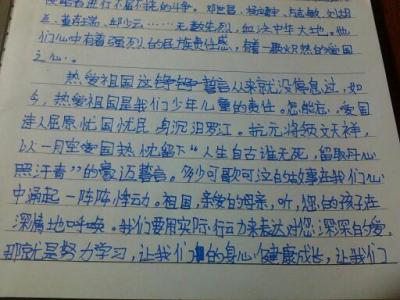 侵略者进行不屈不挠的斗争。邓世昌、杨靖宇、左志敏、刘胡
兰、董存瑞、邱少云……无数先烈,血沃中华大地。他
们心中有着强烈的民族责任感,有着一颗火炽热的爱国
之心。
热爱祖国这铮铮誓言从来就没停息过,如
今,热爱祖国是我们少年儿童的责任。怎能忘,爱国
诗人屈原忧国忧民身沉汨罗江。抗元将领文天祥,
以一月空爱国热忱留下“人生自古谁无死,留取丹心
照汗青”的豪迈誓言。多少可歌可泣的故事在我们心
中涌起一阵阵悸动。祖国,亲爱的母亲,听,您的孩子在
深情地呼唤。我们要用实际行动来表达对您深深的爱,
那就是努力学习,让我们的身心健康成长,让我们